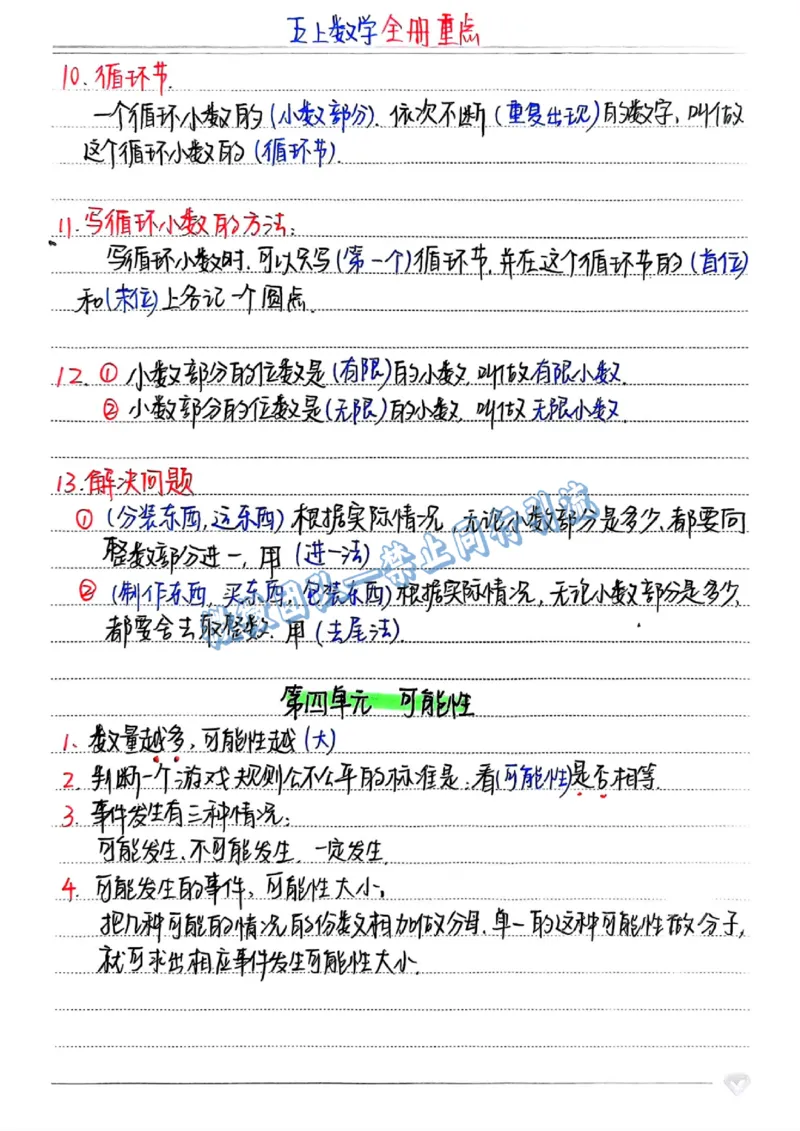 五上数学全册重点
10.循环节.
一个循环小数的(小数部分).依次不断(重复出现)的数字,叫做
这个循环小数的(循环节).
11.写循环小数的方法:
写循环小数时.可以只写(第一个)循环节,并在这个循环节的(首位)
和(末位)上各记一个圆点.
12.①小数部分的位数是(有限)的小数,叫做有限小数.
②小数部分的位数是(无限)的小数,叫做无限小数.
13.解决问题
①(分装东西,运东西)根据实际情况,无论小数部分是多少,都要向
整数部分进一,用(进一法)
②(制作东西,买东西,包装东西)根据实际情况,无论小数部分是多少,
都要舍去取整数.用(去尾法).
第四单元 可能性
1、数量越多,可能性越(大)
2.判断一个游戏规则公不公平的标准是:看(可能性)是否相等.
3.事件发生有三种情况:
可能发生、不可能发生.一定发生.
4.可能发生的事件,可能性大小:
把几种可能的情况的份数相加做分母.单一的这种可能性做分子,
就可求出相应事件发生可能性大小.
团队一禁止同行引流